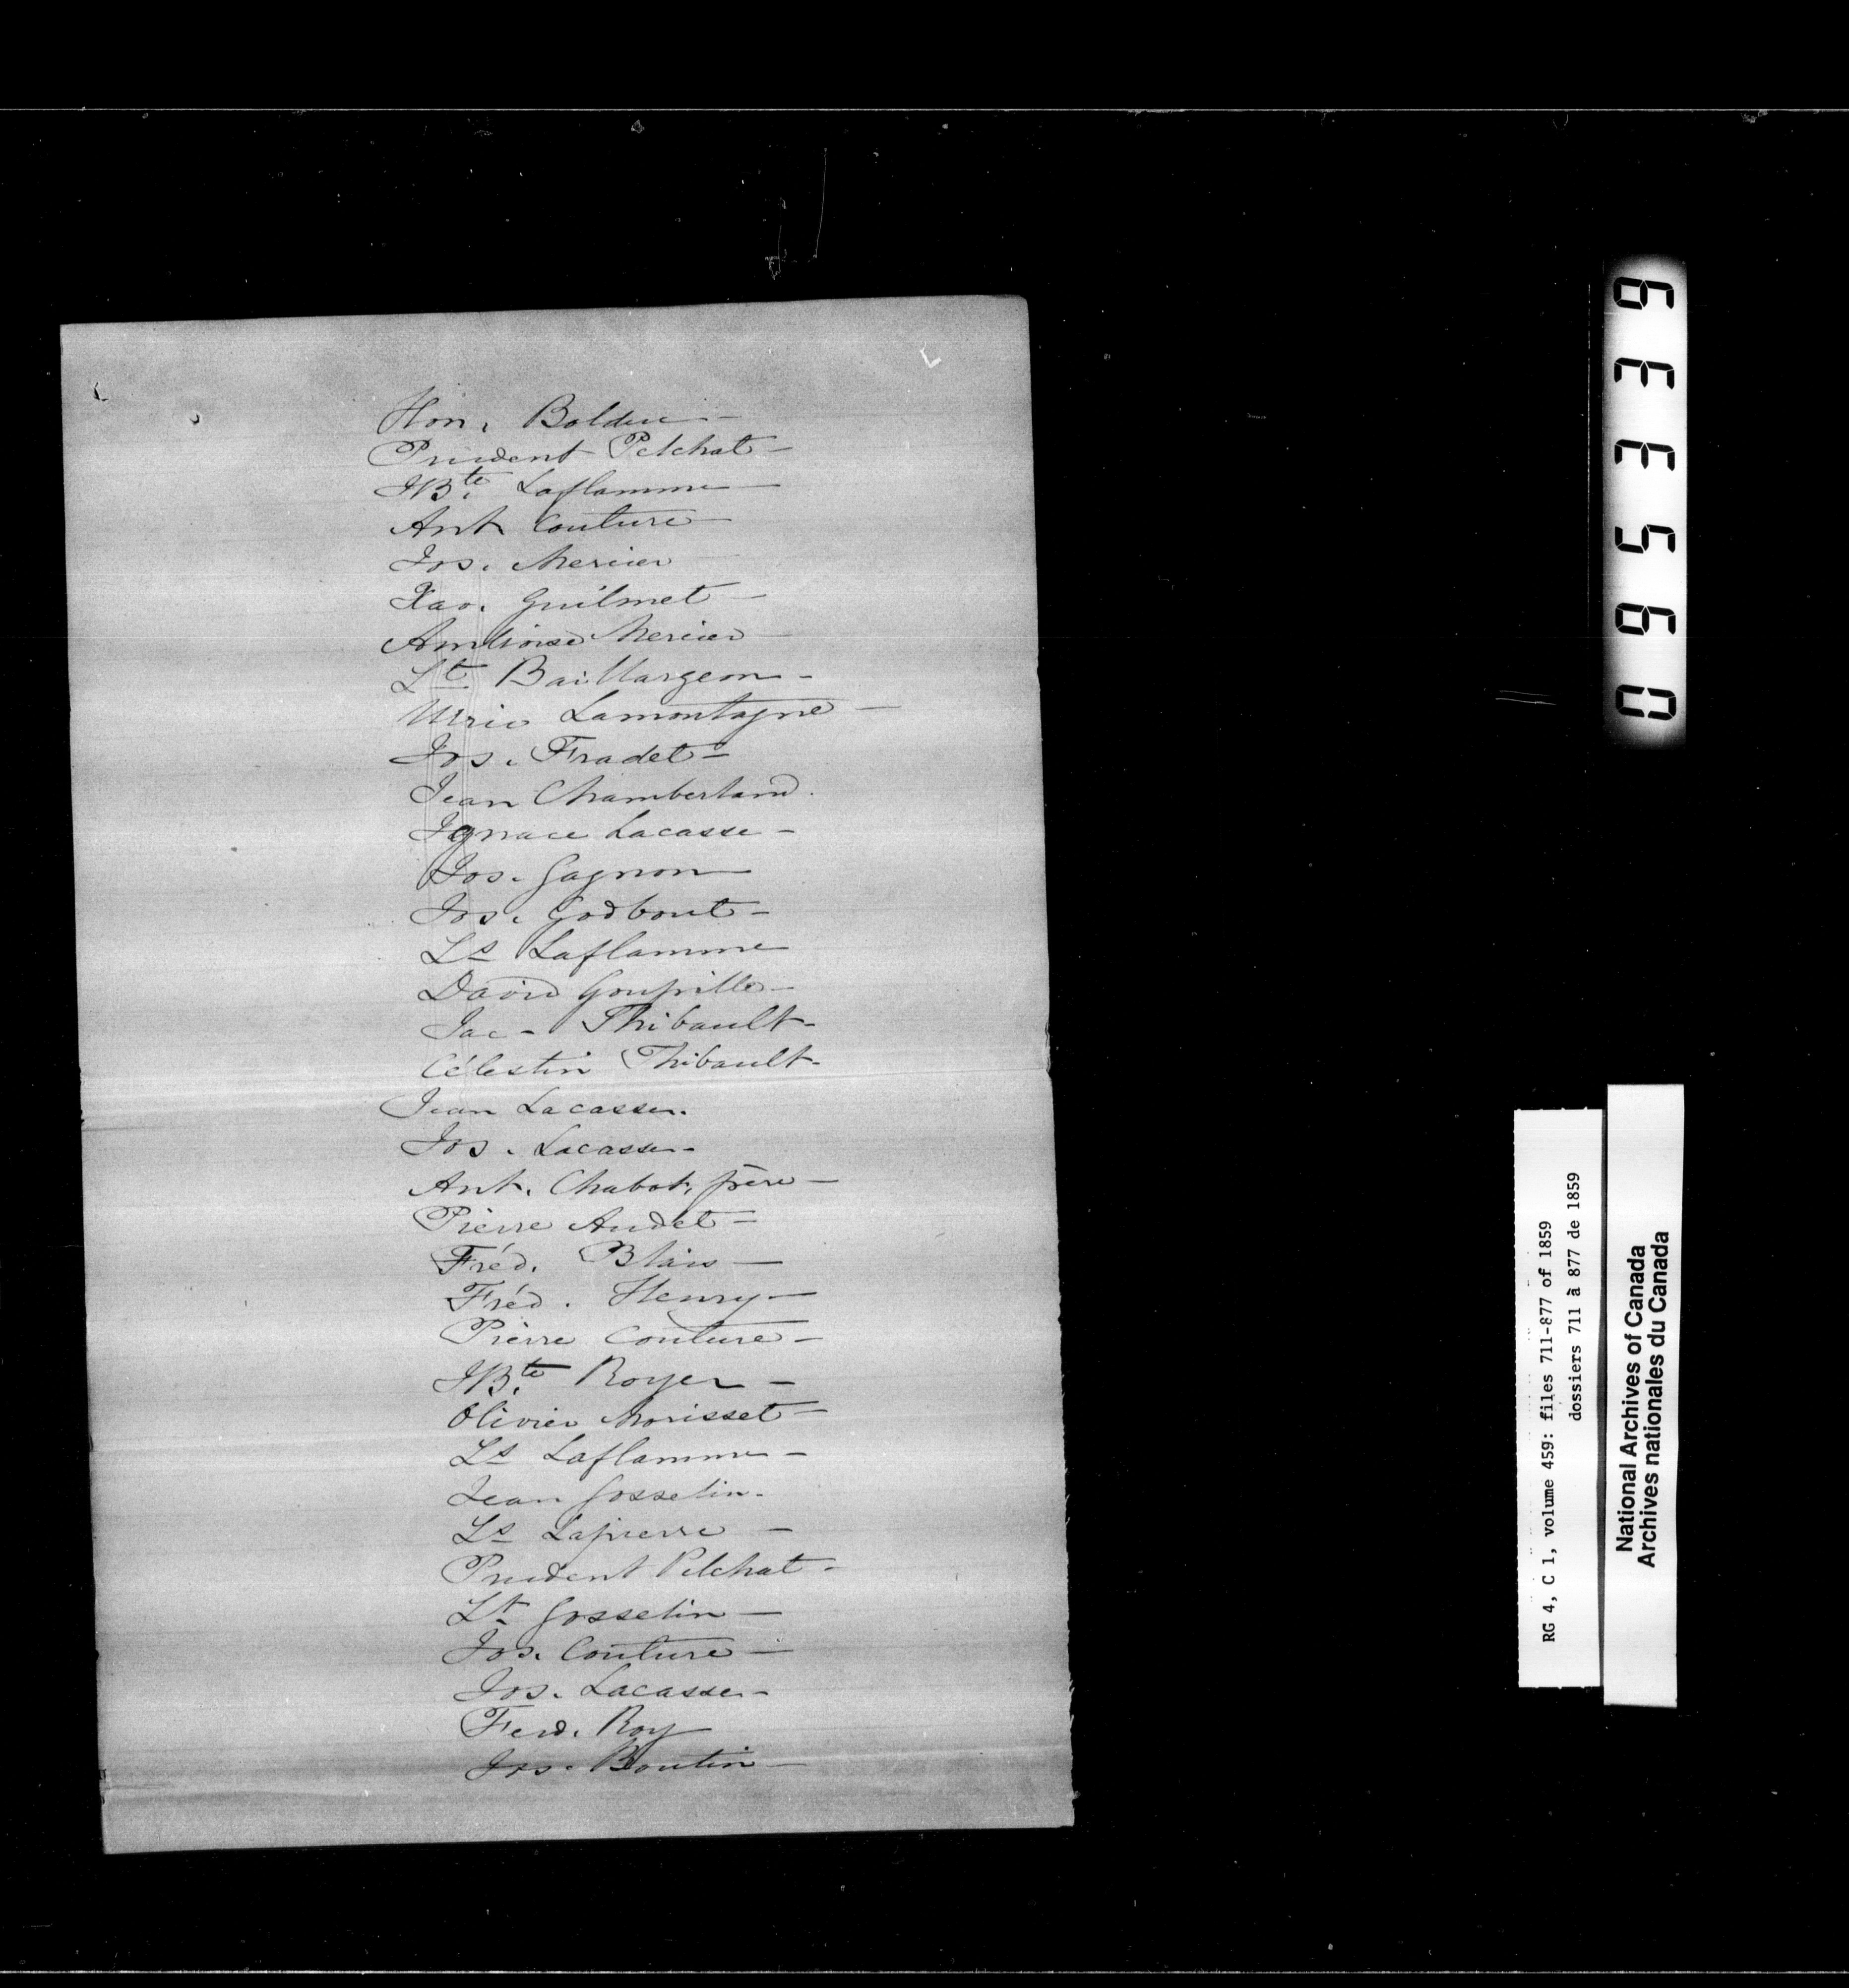 Hon. Bolduc -
Prudent Pelchat -
JBte. Laflamme -
Ant Couture -
Jos. Mercier
Xav. Guilmet -
Ambroise Mercier -
Lt Baillargeon -
Ulric Lamontagne -
Jos. Fradet -
Jean Chamberland.
Ignace Lacasse -
Jos. Gagnon
Jos. Godbout -
Ls Laflamme
David Goupille -
Jac - Thibault -
Célestin Thibault -
Jean Lacasse.
Jos. Lacasse -
Ant. Chabot, père -
Pierre Audet -
Fréd. Blais -
Fréd. Henry -
Pierre Couture -
JBte. Royer -
Olivier Morisset -
Ls Laflamme -
Jean Gosselin -
Ls Lapierre -
Prudent Pelchat -
Lt Gosselin -
Jos. Couture -
Jos. Lacasse -
Ferd. Roy
Jos. Boutin -
065339
RG 4, C 1, volume 459: files 711-877 of 1859
dossiers 711 à 877 de 1859
National Archives of Canada
Archives nationales du Canada